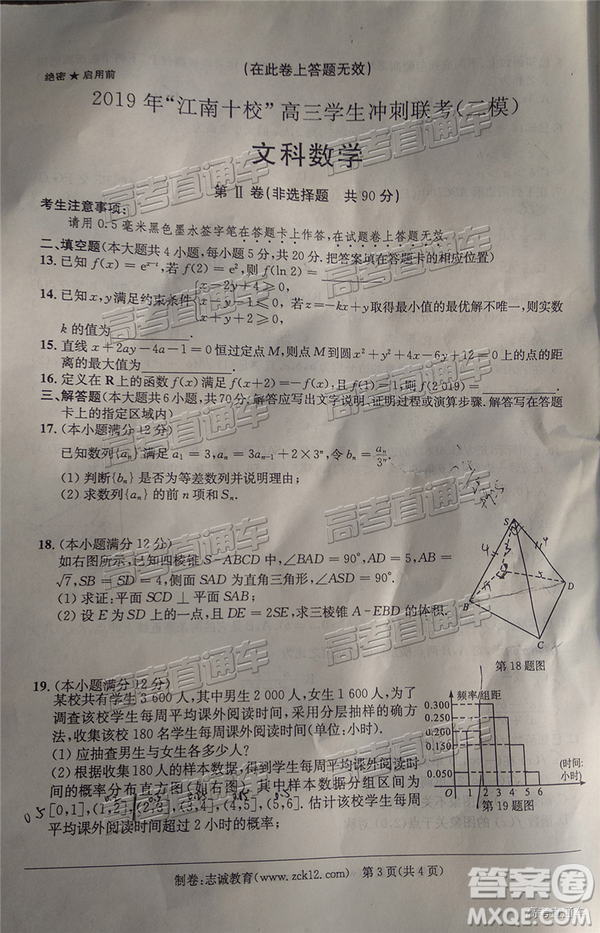 (在此卷上答题无效)
绝密★启用前
2019年“江南十校”高三学生冲刺联考(二模)
文科数学
第Ⅱ卷(非选择题 共90分)
考生注意事项:
请用0.5毫米黑色墨水签字笔在答题卡上作答,在试题卷上答题无效.
二、填空题(本大题共4小题,每小题5分,共20分.把答案填在答题卡的相应位置.)
13. 已知f(x)=
,若f(2)=e²,则f(ln2)=
x-2y+4≥0,
14. 已知x,y满足约束条件 x-y-1≤0, 若z=-kx+y取得最小值的最优解不唯一,则实数
x+y+2≥0,
k的值为
15. 直线x+2ay-4a-1=0恒过定点M,则点M到圆x²+y²+4x-6y+12=0上的点的距
离的最大值为
16. 定义在R上的函数f(x)满足f(x+2)=-f(x),则f(2019)=
三、解答题(本大题共6小题,共70分.解答应写出文字说明、证明过程或演算步骤.解答写在答题
卡上的指定区域内)
17. (本小题满分12分)
已知数列{aₙ}满足a₁=3,aₙ=3aₙ₋₁+2×3ⁿ,令bₙ=aₙ/3ⁿ.
(1) 判断{bₙ}是否为等差数列并说明理由;
(2) 求数列{aₙ}的前n项和Sₙ.
18. (本小题满分12分)
如右图所示,已知四棱锥S-ABCD中,∠BAD=90°,∠SAD=90°,AB=
√7,SB=SD=4,侧面SAD为等腰直角三角形,∠ASB=90°.
(1) 求证:平面SCD⊥平面SAB;
(2) 设E为SD上的一点,且DE=2SE,求三棱锥A-EBD的体积.
S
B
D
C
第18题图
19. (本小题满分12分)
某校共有学生3 600人,其中男生2 000人,女生1 600人,为了
调查该校学生每周平均课外阅读时间,采用分层抽样的方
法,收集该校180名学生每周平均课外阅读时间(单位:小时).
(1) 应抽查男生与女生各多少人?
(2) 根据收集180人的样本数据,得到学生每周平均课外阅读时间的频
率分布直方图(如右图).其中样本数据分组区间为
[0,1],(1,2],(2,3],(3,4],(4,5],(5,6].估计该校学生每周
平均课外阅读时间超过2小时的概率;
频率/组距
0.300
0.250
0.200
0.150
0.050
1 2 3 4 5 6
(时间:小时)
第19题图
制卷:志诚教育(www.zck12.com) 第3页(共4页)
高考直通车
答案卷